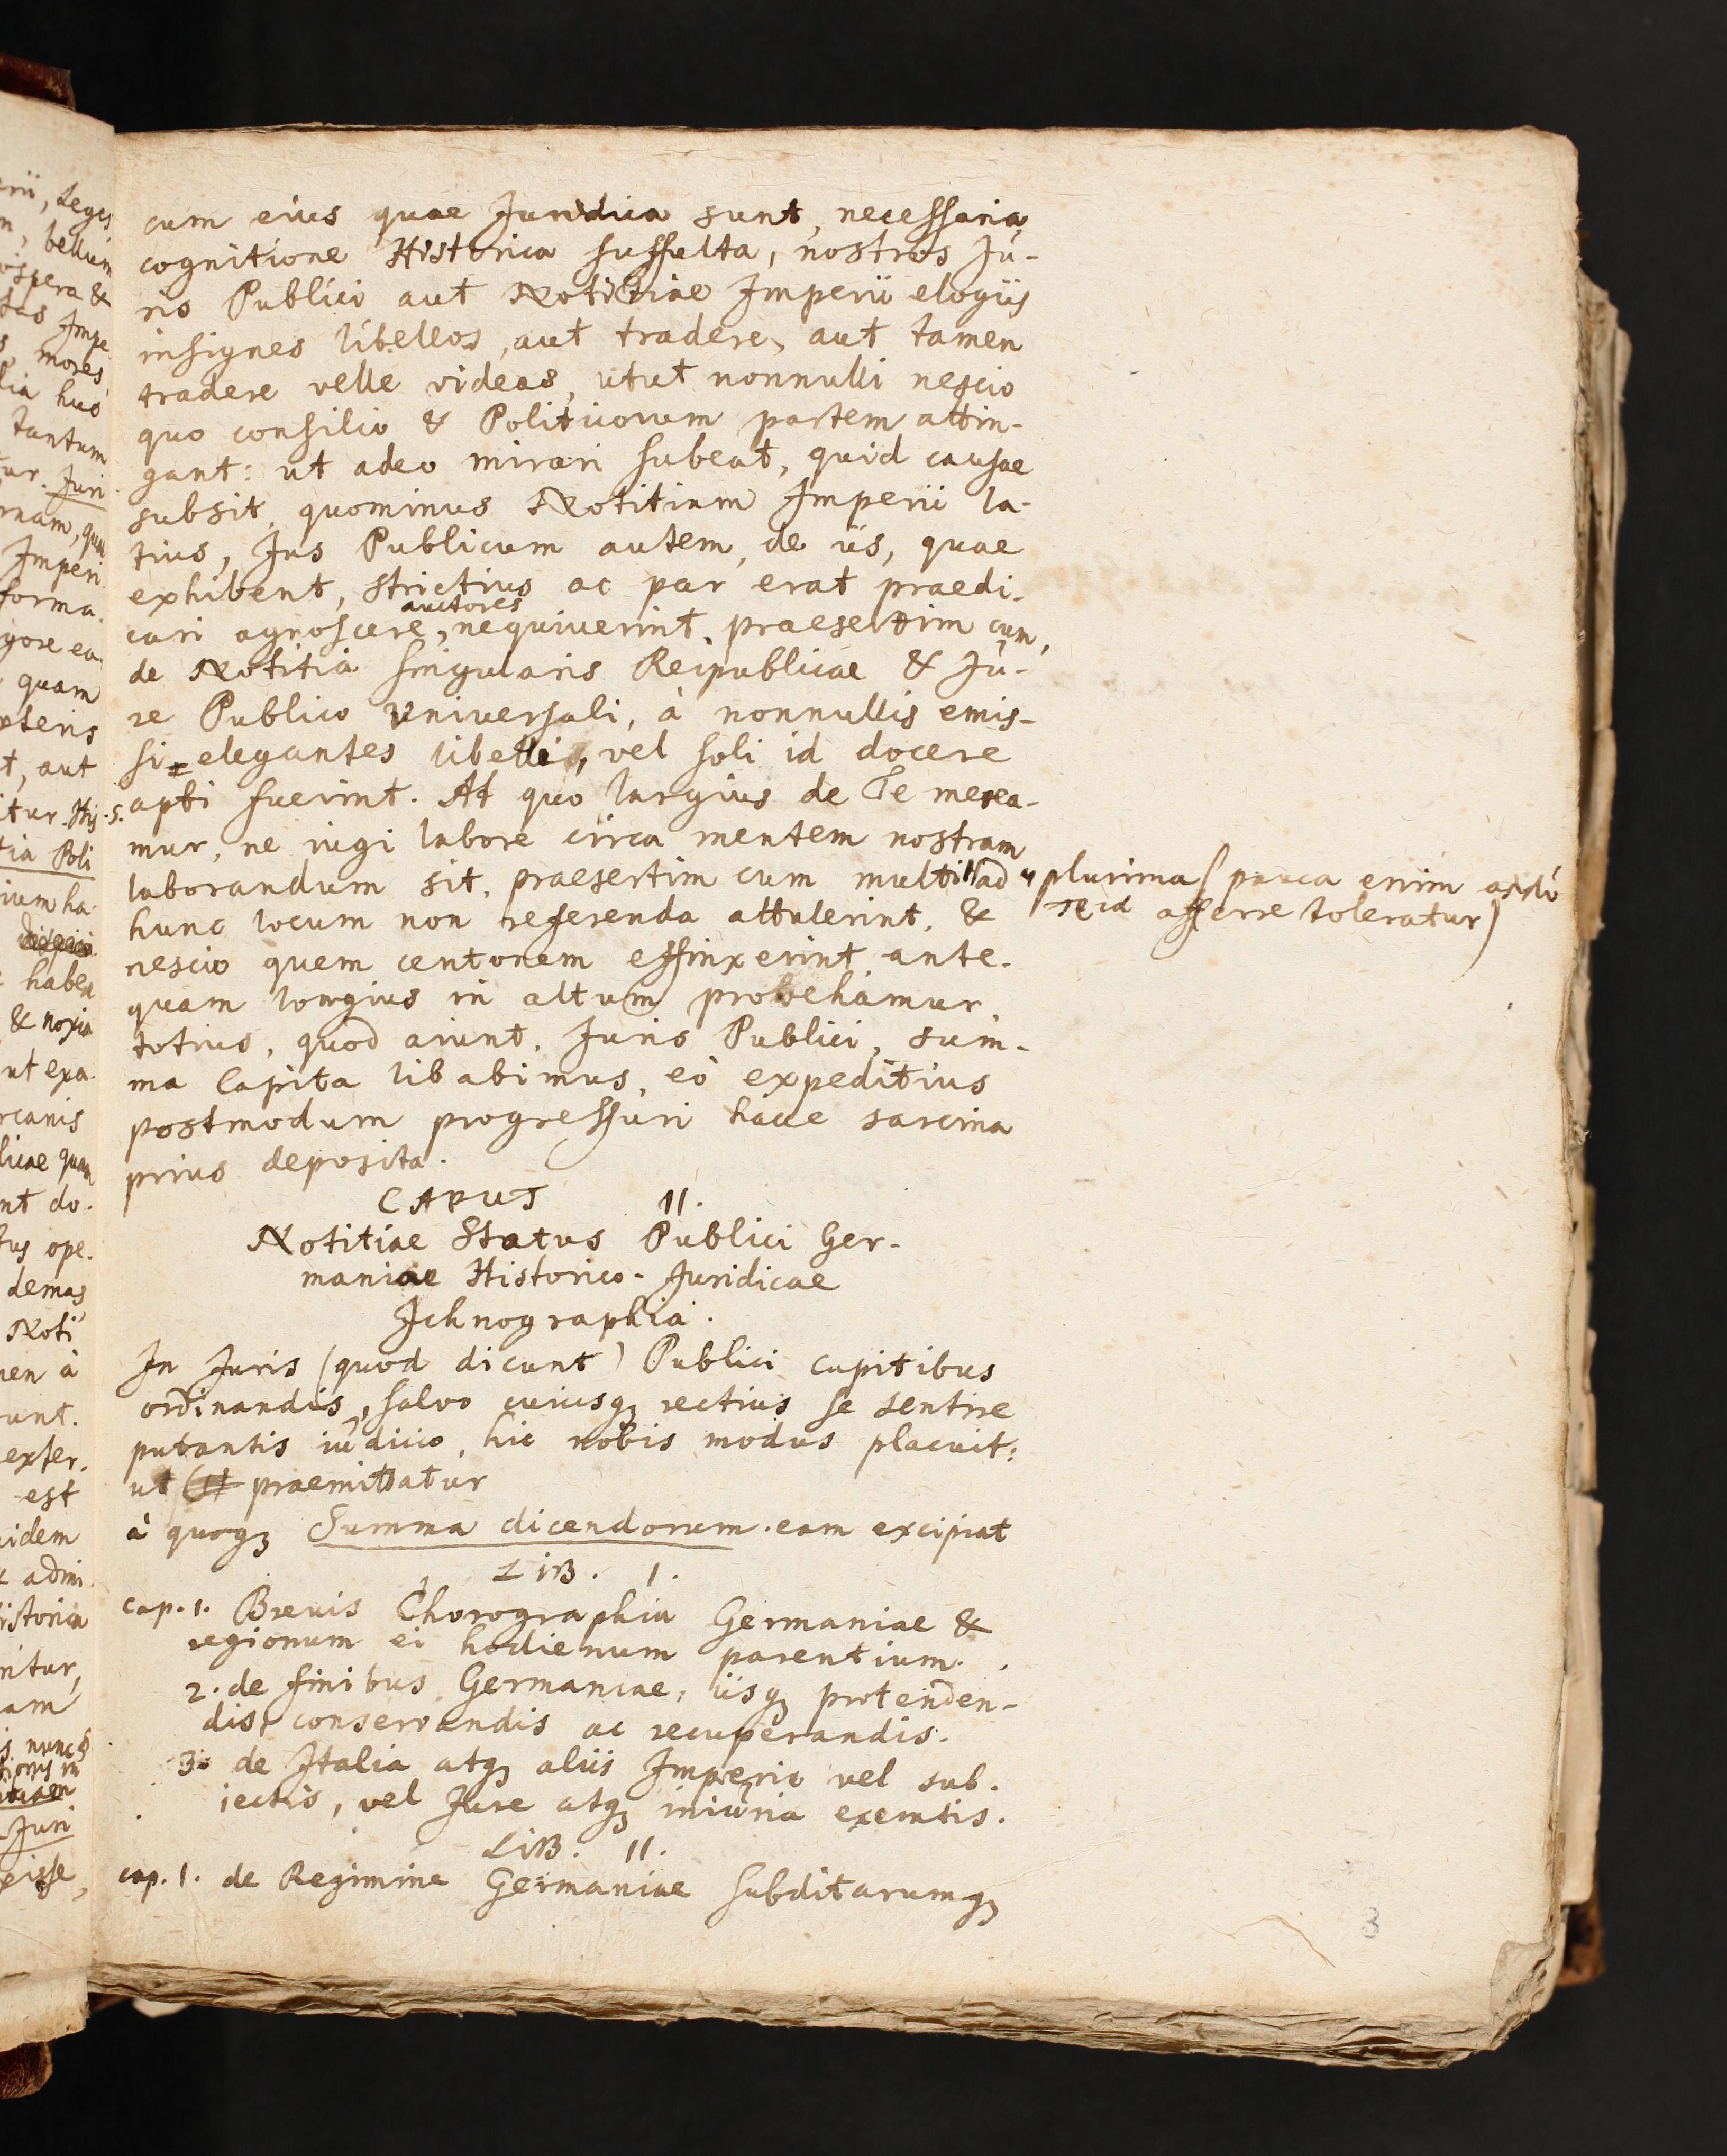 cum eius quae Juridica sunt, necessaria,
cognitione Historica suffulta, nostros Ju-
ris Publici aut Notitiae Imperii elogiis
insignes libellos, aut tradere, aut tamen
tradere velle videas, utut nonnulli nescio
quo consilio & Politicorum partem attin-
gant: ut adeo mirari subeat, quid causae
subsit, quominus Notitiam Imperii la-
tius, Jus Publicum autem, de iis, quae
exhibent, strictius ac par erat praedi-
cari agnoscere, auctores nequiverint, praesertim cum,
de Notitia singularis Reipublicae & Ju-
re Publico Universali, à nonnullis emis-
si elegantes libelli, vel soli id docere
apti fuerint. At quo largius de Te merea-
mur, ne iugi labore circa mentem nostram
laborandum sit, praesertim cum multi ad
plurima (pauca enim
afferre toleratur)
hunc locum non referenda attulerint, &
nescio quem centonem effinxerint, ante-
quam longius in altum provehamur,
totius, quod aiunt, Juris Publici, sum-
ma Capita libabimus, eò expeditius
postmodum progressuri hacce sarcina
prius deposita.
CAPUT II.
Notitiae Status Publici Ger-
maniae Historico-Juridicae
Ichnographia.
In Juris (quod dicunt) Publici capitibus
ordinandis, salvo cuiusq; rectius se sentire
putantis iudicio, hic nobis modus placuit:
ut praemittatur
à quoq; Summa dicendorum. eam excipiat
LIB. I.
cap. 1. Brevis Chorographia Germaniae &
regionum ei hodienum parentium.
2. de finibus Germaniae, iisq; protenden-
dis, conservandis ac recuperandis.
3. de Italia atq; aliis Imperio vel sub-
iectis, vel Jure atq; iniuria exemtis.
LIB. II.
cap. 1. de Regimine Germaniae subditarumq;
3